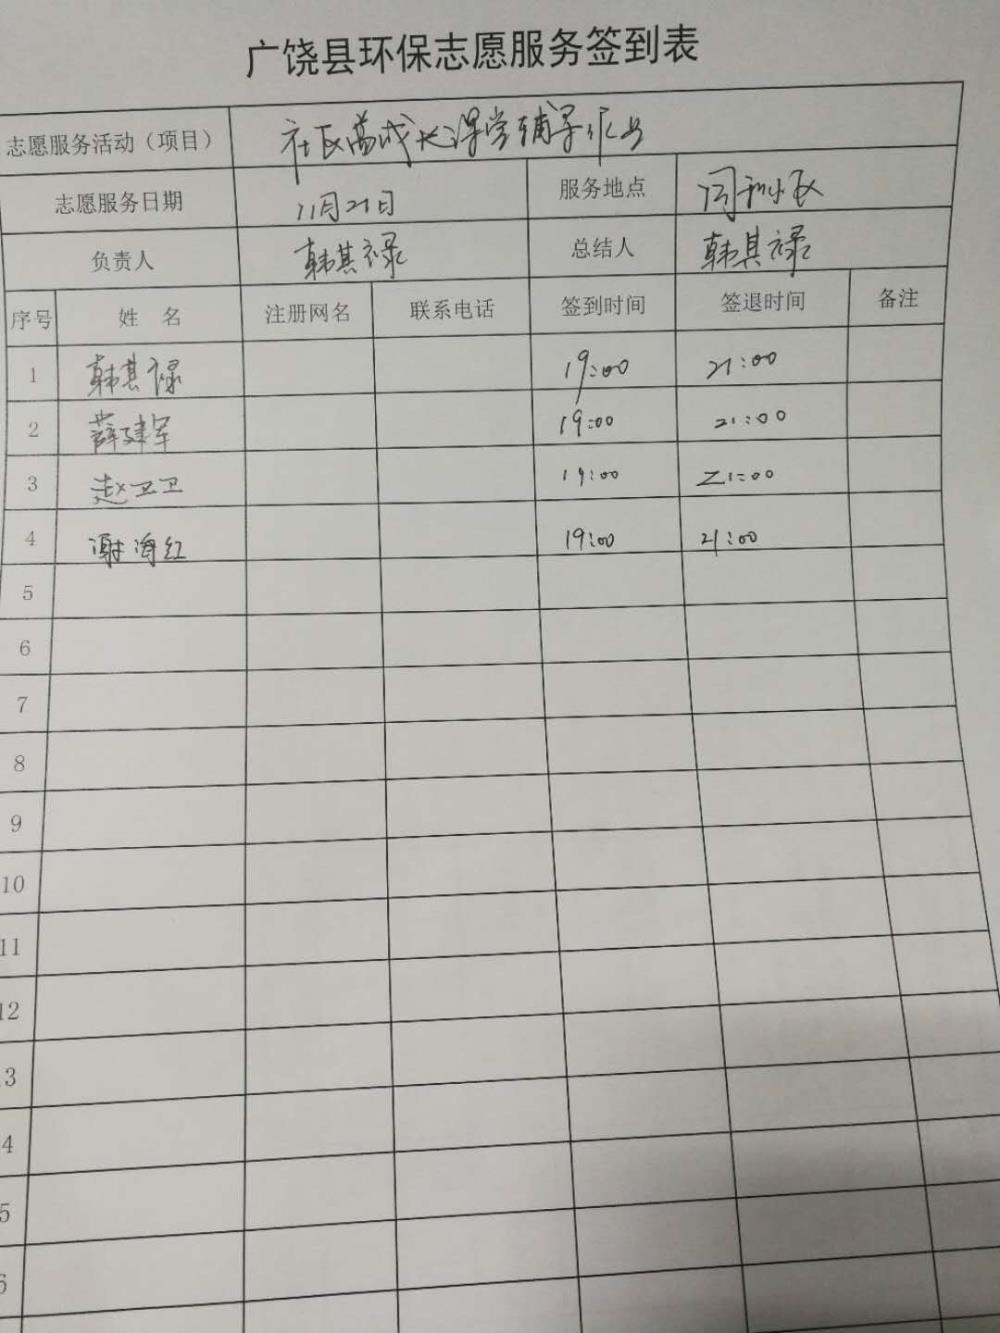 广饶县环保志愿服务签到表
志愿服务活动（项目） 社区 成长课堂辅导作业
志愿服务日期 11月21日 服务地点 小区
负责人 韩其禄 总结人 韩其禄
序号 姓 名 注册网名 联系电话 签到时间 签退时间 备注
1 韩其禄 19:00 21:00
2 薛建军 19:00 21:00
3 赵卫卫 19:00 21:00
4 谢海红 19:00 21:00
5
6
7
8
9
10
11
12
3
4
5
6